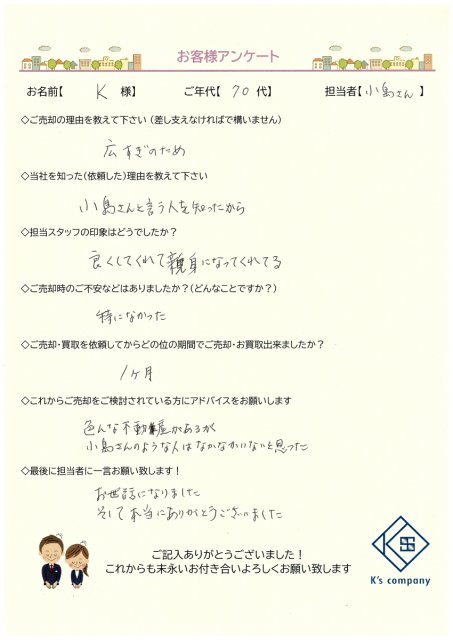 お客様アンケート
お名前【 K 様】 ご年代【 70 代】 担当者【 小島さん 】
◇ご売却の理由を教えて下さい（差し支えなければで構いません）
広すぎのため
◇当社を知った（依頼した）理由を教えて下さい
小島さんと言う人を知ったから
◇担当スタッフの印象はどうでしたか？
良くしてくれて親身になってくれてる
◇ご売却時のご不安などはありましたか？（どんなことですか？）
特になかった
◇ご売却・買取を依頼してからどの位の期間でご売却・お買取出来ましたか？
1ヶ月
◇これからご売却をご検討されている方にアドバイスをお願いします
色んな不動産があるが
小島さんのような人はなかなかいないと思った
◇最後に担当者に一言お願い致します！
お世話になりました
そして本当にありがとうございました
ご記入ありがとうございました！
これからも末永いお付き合いよろしくお願い致します
K's company